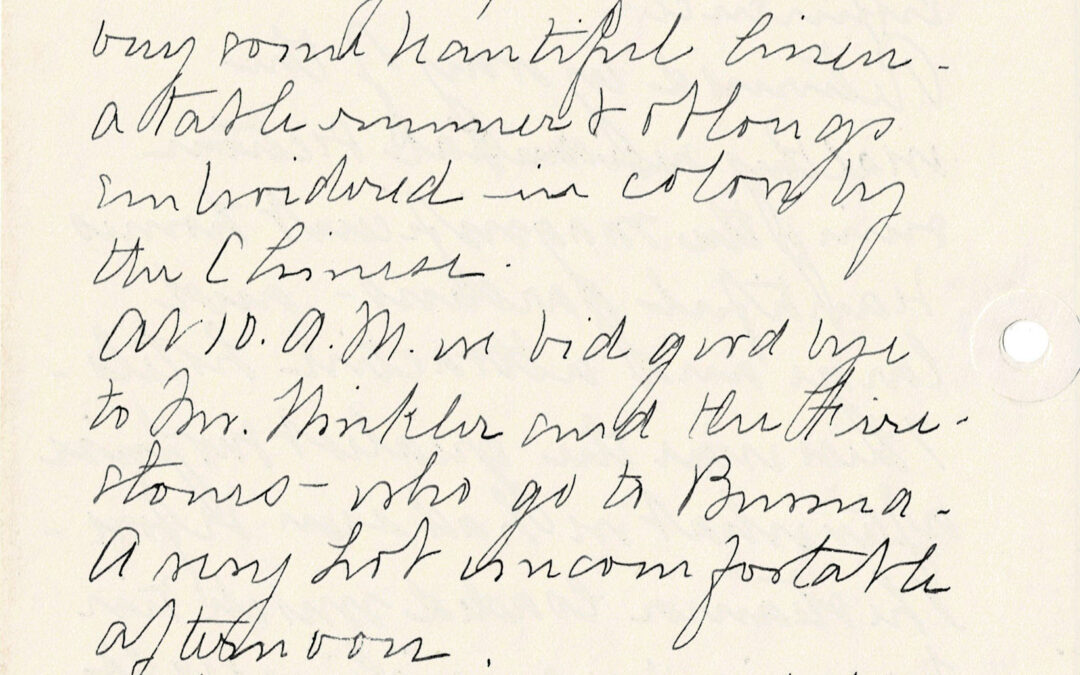 buy some beautiful linen -
a table runner & oblongs
embroidered in colors by
the Chinese.
At 10. A.M. we bid good bye
to Mr. Winkler and the Fire-
stones - who go to Burma -
A very hot uncomfortable
afternoon.